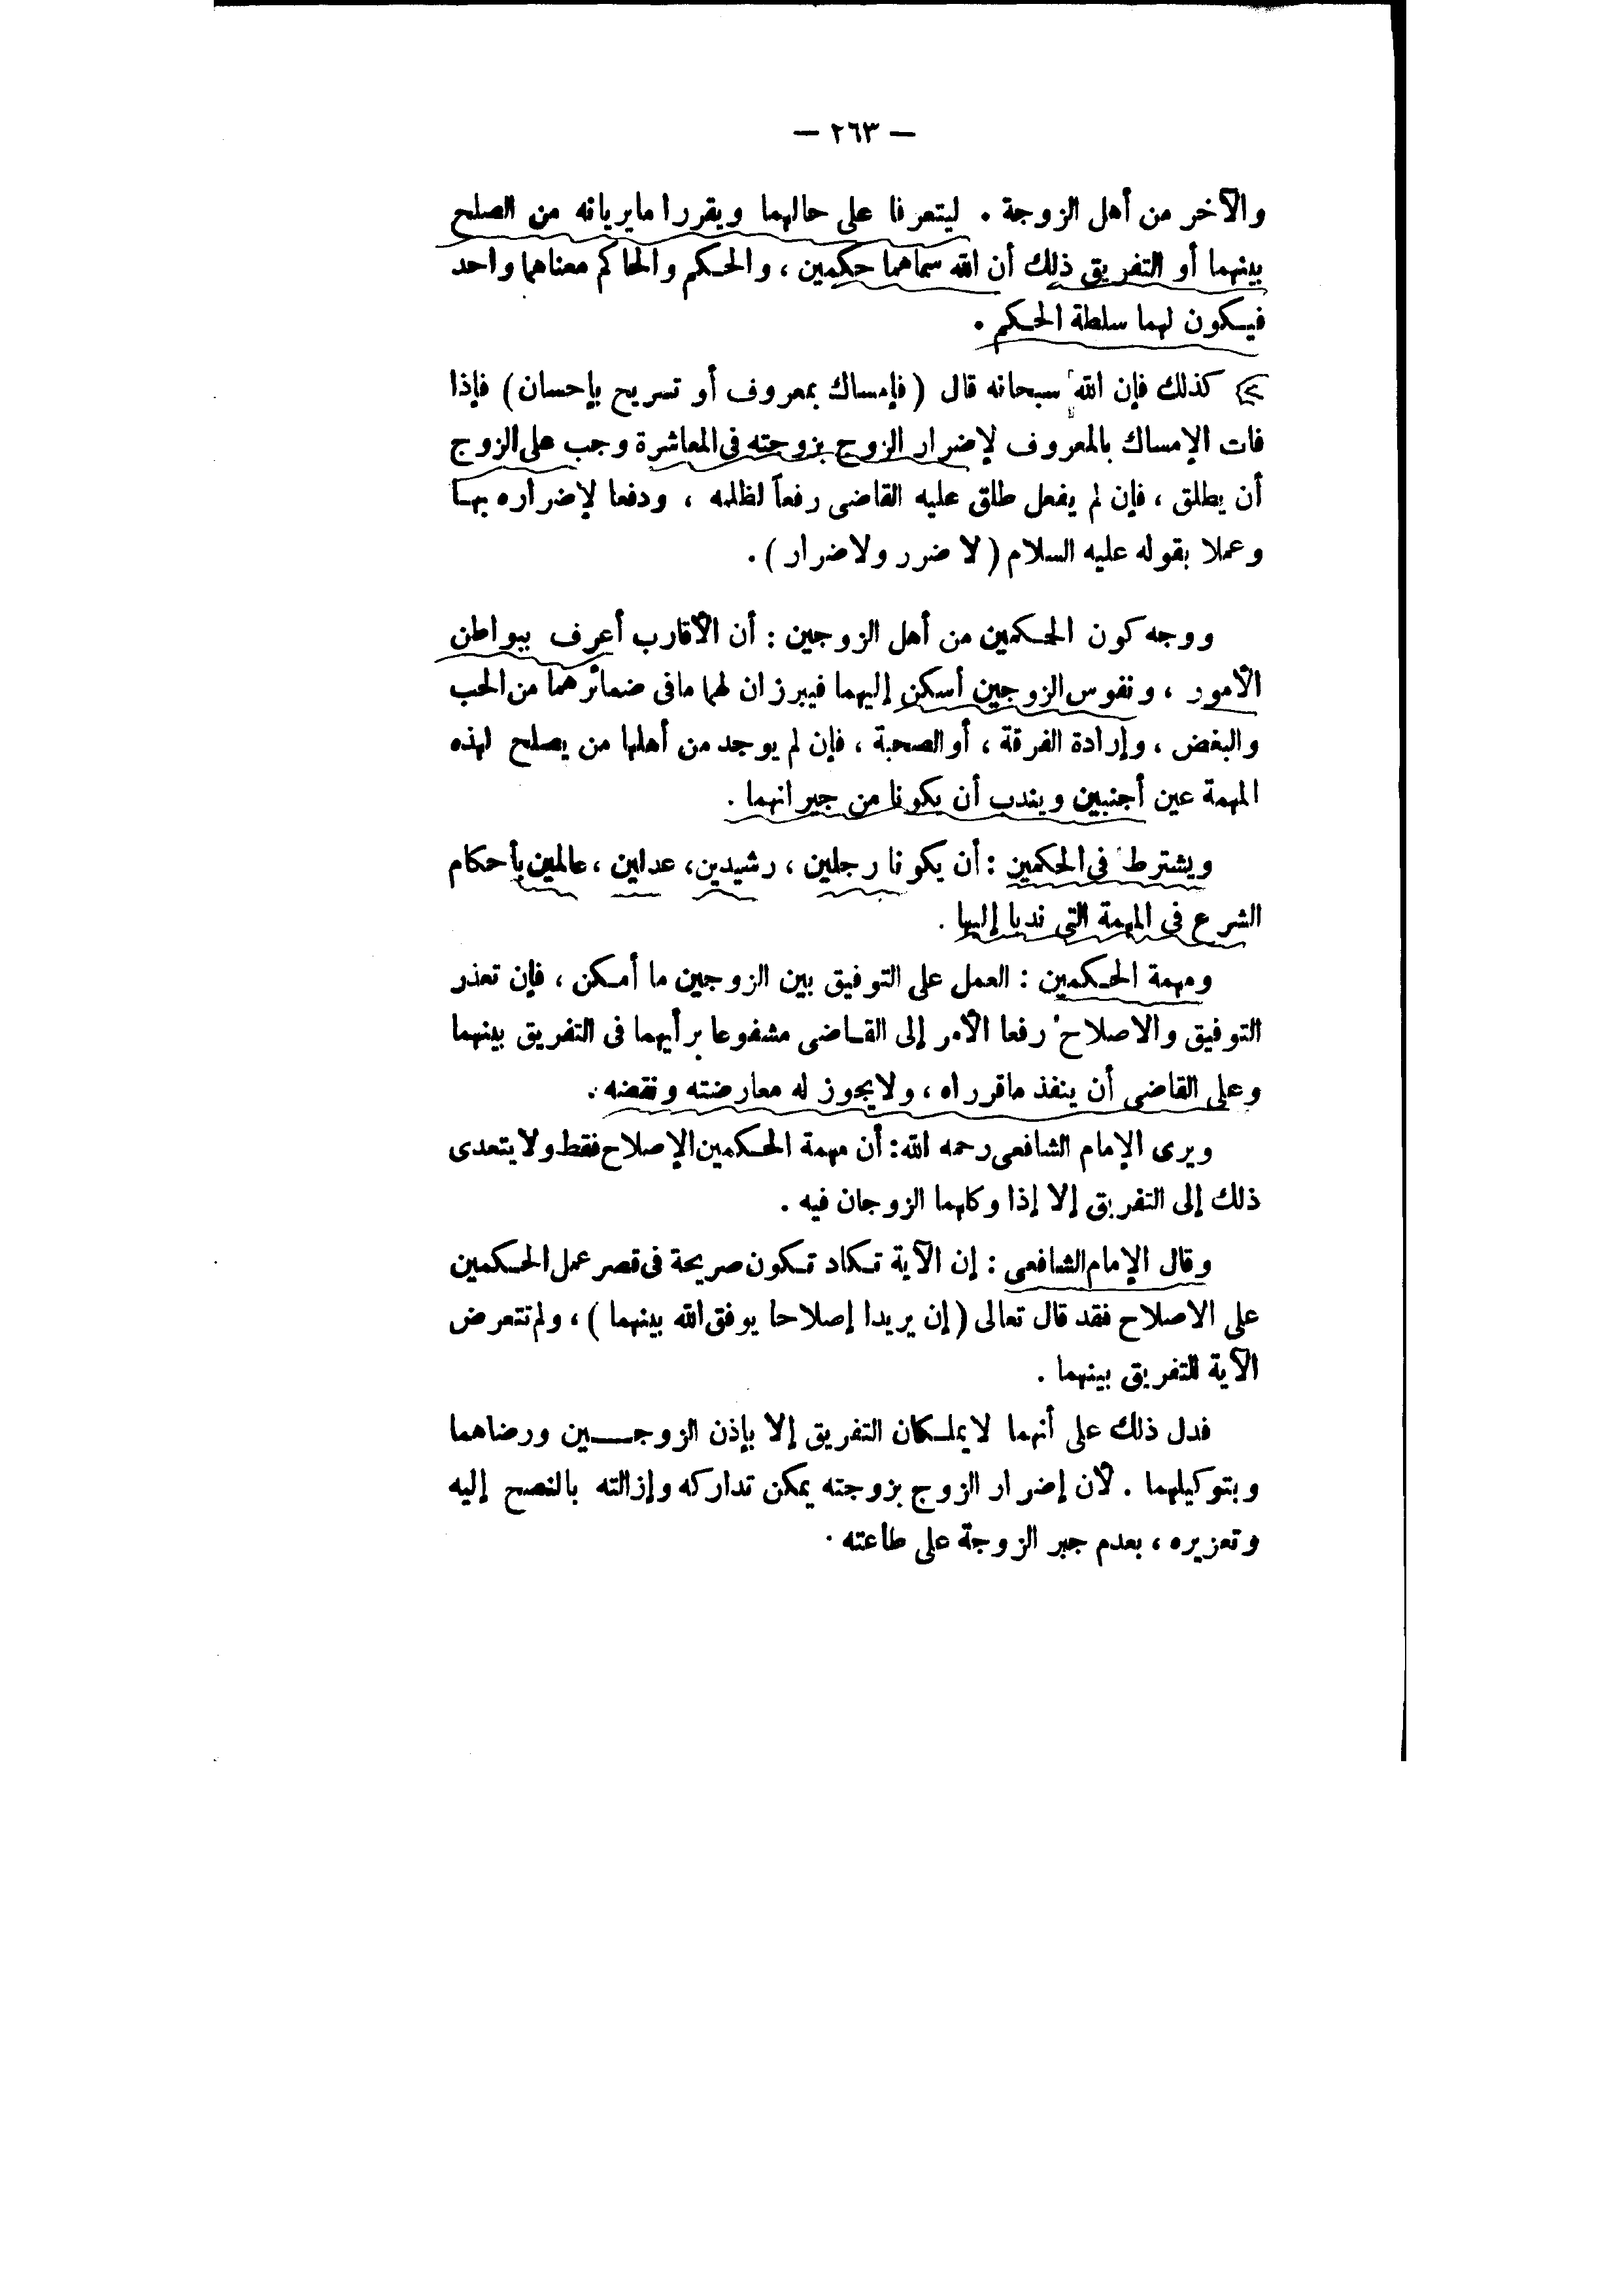 — ٢٦٣ —
والآخر من أهل الزوجة . ليتعرفا على حالهما ويقررا مايريانه من الصلح
بينهما أو التفريق ذلك أن الله سماهما حكمين ، والحكم والحاكم معناهما واحد
فيكون لهما سلطة الحكم .
كذلك فإن الله سبحانه قال ( فإمساك بمعروف أو تسريح بإحسان ) فإذا
فات الإمساك بالمعروف لإضرار الزوج بزوجته فى المعاشرة وجب على الزوج
أن يطلق ، فإن لم يفعل طلق عليه القاضى رفعاً لظلمه ، ودفعا لإضراره بها
وعملا بقوله عليه السلام ( لا ضرر ولاضرار ) .
ووجه كون الحكمين من أهل الزوجين : أن الأقارب أعرف ببواطن
الأمور ، ونفوس الزوجين أسكن إليهما فيبرزان لهما مافى ضمائرهما من الحب
والبغض ، وإرادة الفرقة ، أو الصحبة ، فإن لم يوجد من أهلها من يصلح لهذه
المهمة عين أجنبيين ويندب أن يكونا من جيرانهما .
ويشترط فى الحكمين : أن يكونا رجلين ، رشيدين ، عدلين ، عالمين بأحكام
الشرع فى المهمة التى ندبا إليها .
ومهمة الحكمين : العمل على التوفيق بين الزوجين ما أمكن ، فإن تعذر
التوفيق والاصلاح رفعا الأمر إلى القاضى مشفوعا برأيهما فى التفريق بينهما
وعلى القاضى أن ينفذ ماقرراه ، ولايجوز له معارضته ونقضه .
ويرى الإمام الشافعى رحمه الله : أن مهمة الحكمين الإصلاح فقط ولا يتعدى
ذلك إلى التفريق إلا إذا وكلهما الزوجان فيه .
وقال الإمام الشافعى : إن الآية تكاد تكون صريحة فى قصر عمل الحكمين
على الاصلاح فقد قال تعالى ( إن يريدا إصلاحا يوفق الله بينهما ) ، ولم تتعرض
الآية للتفريق بينهما .
فدل ذلك على أنهما لايملكان التفريق إلا بإذن الزوجين ورضاهما
وبتوكيلهما . لأن إضرار الزوج بزوجته يمكن تداركه وإزالته بالنصح إليه
وتعزيره ، بعدم جبر الزوجة على طاعته .